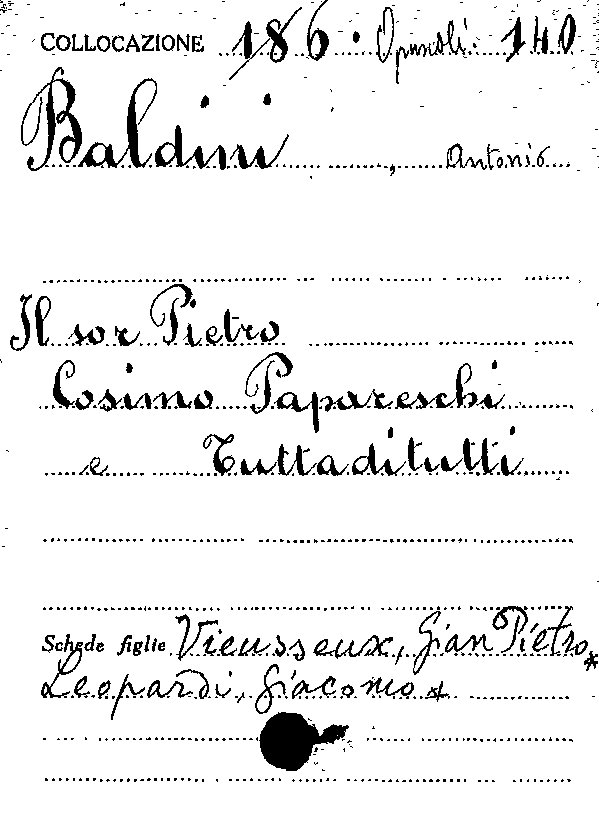 COLLOCAZIONE 186 · Opuscoli: 140
Baldini, Antonio
Il sor Pietro
Cosimo Papareschi
e Tuttaditutti
Schede figlie Vieusseux, Gian Pietro*
Leopardi, Giacomo *